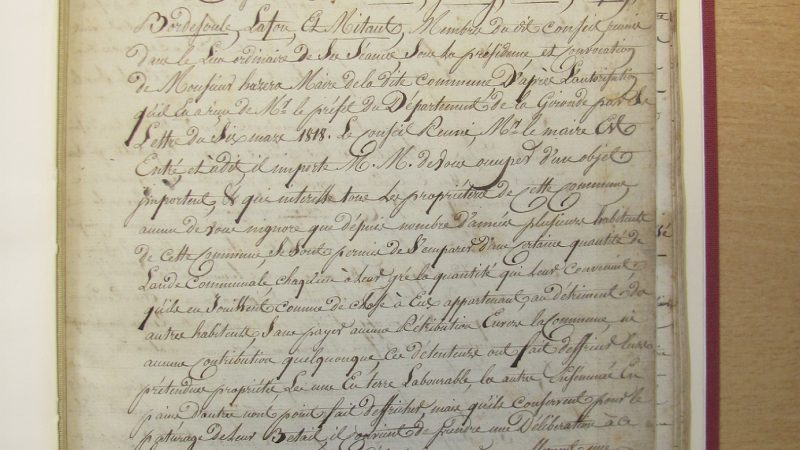 Bordesoule, Lafon, Et Mitaut, Membre du dit Conseil reunis
dans le Lieu ordinaire de Ses Séances, Sous la présidence, et convocation
de Monsieur hazera Maire de la dite commune D'après L'autorisation
qu'il a reçu de Mr. le préfet du Département de la Gironde par Sa
Lettre du Six mars 1818. Le conseil Reuni, Mr. le maire Est
Entré et a dit, il importe M. M. de vous occuper d'un objet
important, & qui interesse tous les propriétaires de cette commune
aucun de vous n'ignore que dépuis nombre d'années plusieurs habitants
de cette Commune, Se Sont permis de S'emparer d'une Certaine quantité de
Lande Communale chaq'un à Leur gré la quantité qui Leur Convenait
quils en Jouissent comme de chose à Eux appartenant, au détriment des
autres habitents, Sans payer aucune Rétribution Envers la Commune, ni
aucune Contribution quelquonque Ces détenteurs ont fait deffricher Leurs
prétendues propriétés, Les uns En terre Labourable, les autres En
d'autres n'ont point fait deffricher, mais qu'ils Conservent pour le
paturage de Leur Betail il Convient de prendre une Déliberation à ce